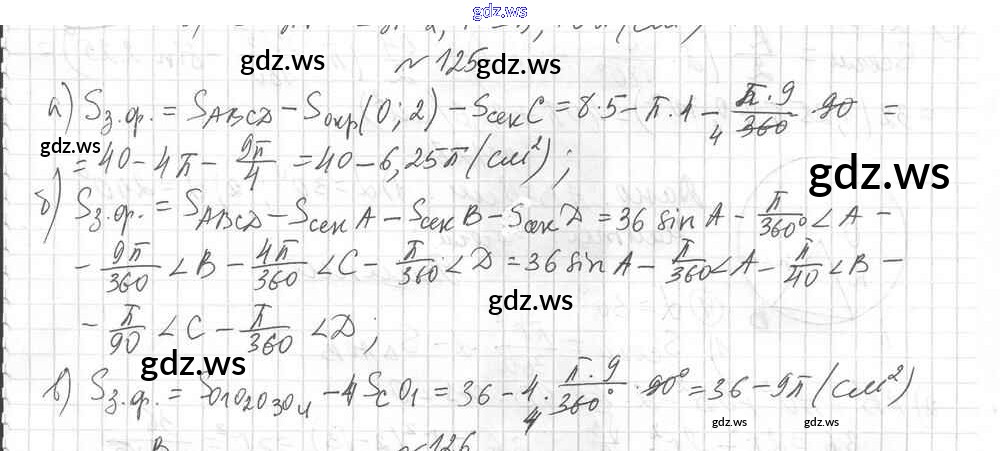 gdz.ws
№ 125
gdz.ws
gdz.ws
а) Sз.ф. = SABCD − Sокр(0; 2) − SсекC = 8·5 − π·4 − π·9/360 · 90 =
4
gdz.ws
= 40 − 4π − 9π/4 = 40 − 6,25π (см²);
gdz.ws
б) Sз.ф. = SABCD − SсекA − SсекB − SсекD = 36 sin A − π/360° ∠A −
− 9π/360 ∠B − 4π/360 ∠C − π/360 ∠D = 36 sin A − π/360 ∠A − π/40 ∠B −
gdz.ws
− π/90 ∠C − π/360 ∠D;
gdz.ws
в) Sз.ф. = SO1O2O3O4 − 4SсO1 = 36 − 4 · π·9/360° · 90° = 36 − 9π (см²)
4
gdz.ws
gdz.ws
№ 126